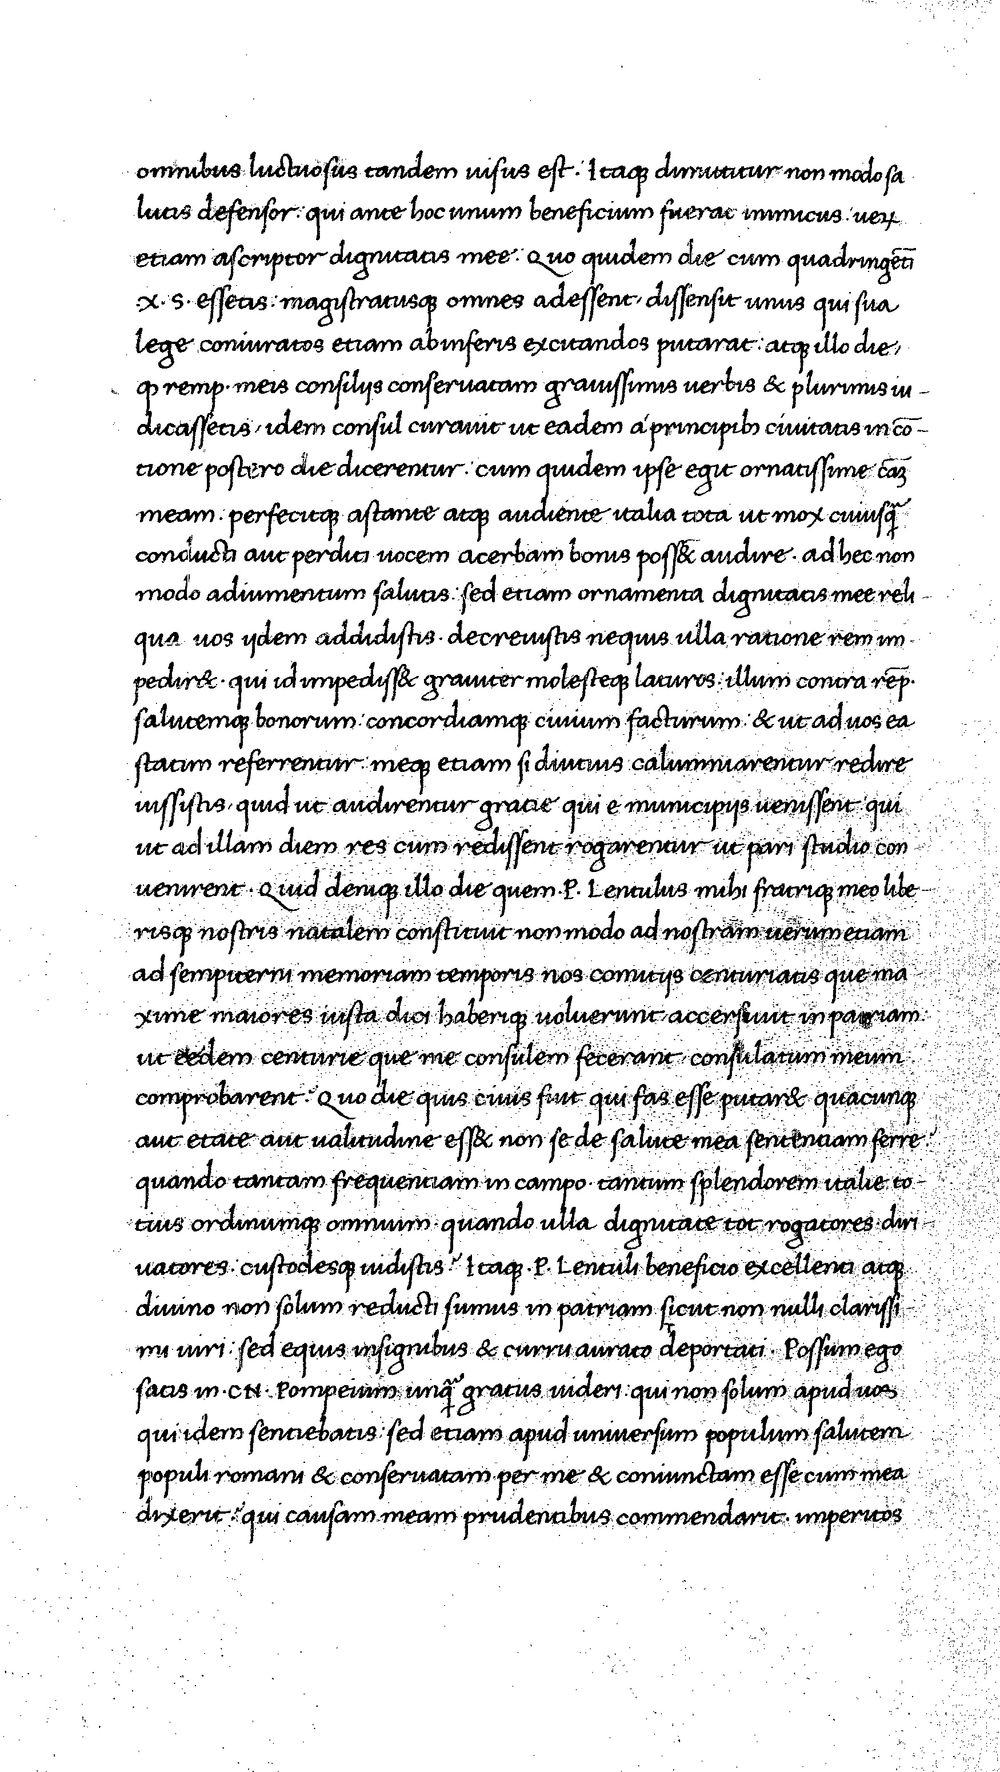 omnibus luctuosus tandem uisus est. Itaq; dimittitur non modo sa
lutis defensor: qui ante hoc unum beneficium fuerat inimicus: ueꝝ
etiam ascriptor dignitatis mee. Quo quidem die cum quadringēti
.X. S. essetis: magistratusq; omnes adessent, dissensit unus qui sua
lege coniuratos etiam ab inferis excitandos putarat: atq; illo die,
ꝙ remp. meis consilijs conseruatam grauissimis uerbis & plurimis iu-
dicassetis, idem consul curauit ut eadem á principib; ciuitatis in cō-
tione postero die dicerentur: cum quidem ipse egit ornatissime cāꝫ
meam. perfecitq; astante atq; audiente italia tota ut mox cuiusq̃
conducti aut perditi uocem acerbam bonis poss& audire. ad hec non
modo adiumentum salutis: sed etiam ornamenta dignitatis mee reli-
qua uos ijdem addidistis. decreuistis nequis ulla ratione rem im-
pedir&. qui id impediss& grauiter molesteq; laturos: illum contra rēp.
salutemq; bonorum: concordiamq; ciuium facturum: & ut ad uos ea
statim referrentur: meq; etiam si diutius calumniarentur redire
iussistis, quid ut audirentur gratie qui e municipijs uenissent qui
ut ad illam diem res cum redissent rogarentur ut pari studio con-
uenirent. Quid deniq; illo die quem .P. Lentulus mihi fratriq; meo libe-
risq; nostris natalem constituit non modo ad nostram uerum etiam
ad sempiterni memoriam temporis nos comitijs centuriatis que ma
xime maiores iusta dici haberiq; uoluerunt accersiuit in patriam:
ut eedem centurie que me consulem fecerant, consulatum meum
comprobarent. Quo die quis ciuis fuit qui fas esse putar& quacunq;
aut etate aut ualitudine ess& non se de salute mea sententiam ferre?
quando tantam frequentiam in campo. tantum splendorem italie to-
tius ordinumq; omnium. quando ulla dignitate tot rogatores. diri-
uatores: custodesq; uidistis? Itaq; .P. Lentuli beneficio excellenti atq;
diuino non solum reducti sumus in patriam sicut non nulli clarissi-
mi uiri: sed equis insignibus & curru aurato deportati. Possum ego
satis in .CN. Pompeium unq̃ gratus uideri: qui non solum apud uos
qui idem sentiebatis: sed etiam apud uniuersum populum salutem
populi romani & conseruatam per me & coniunctam esse cum mea
dixerit? qui causam meam prudentibus commendarit. imperitos